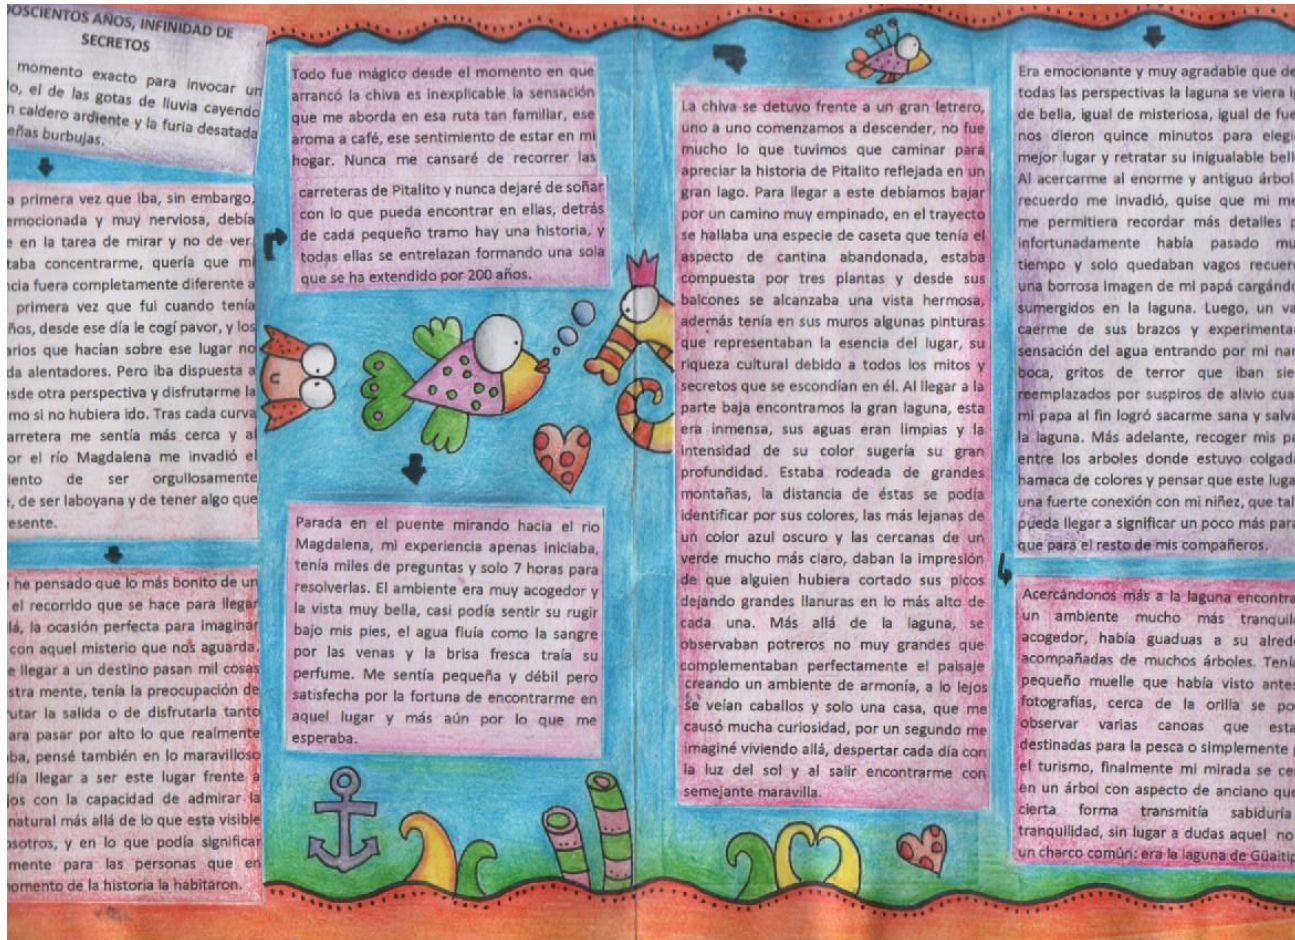 DOSCIENTOS AÑOS, INFINIDAD DE
SECRETOS
momento exacto para invocar un
o, el de las gotas de lluvia cayendo
n caldero ardiente y la furia desatada
eñas burbujas.
a primera vez que iba, sin embargo,
emocionada y muy nerviosa, debía
e en la tarea de mirar y no de ver,
taba concentrarme, quería que mi
ncia fuera completamente diferente a
primera vez que fui cuando tenía
ños, desde ese día le cogí pavor, y los
arios que hacían sobre ese lugar no
da alentadores. Pero iba dispuesta a
esde otra perspectiva y disfrutarme la
mo si no hubiera ido. Tras cada curva
arretera me sentía más cerca y al
or el río Magdalena me invadió el
iento de ser orgullosamente
, de ser laboyana y de tener algo que
esente.
he pensado que lo más bonito de un
el recorrido que se hace para llegar
lá, la ocasión perfecta para imaginar
con aquel misterio que nos aguarda.
e llegar a un destino pasan mil cosas
stra mente, tenía la preocupación de
rutar la salida o de disfrutarla tanto
ara pasar por alto lo que realmente
ba, pensé también en lo maravilloso
día llegar a ser este lugar frente a
jos con la capacidad de admirar la
natural más allá de lo que esta visible
osotros, y en lo que podía significar
mente para las personas que en
omento de la historia la habitaron.
Todo fue mágico desde el momento en que
arrancó la chiva es inexplicable la sensación
que me aborda en esa ruta tan familiar, ese
aroma a café, ese sentimiento de estar en mi
hogar. Nunca me cansaré de recorrer las
carreteras de Pitalito y nunca dejaré de soñar
con lo que pueda encontrar en ellas, detrás
de cada pequeño tramo hay una historia, y
todas ellas se entrelazan formando una sola
que se ha extendido por 200 años.
Parada en el puente mirando hacia el rio
Magdalena, mi experiencia apenas iniciaba,
tenía miles de preguntas y solo 7 horas para
resolverlas. El ambiente era muy acogedor y
la vista muy bella, casi podía sentir su rugir
bajo mis pies, el agua fluía como la sangre
por las venas y la brisa fresca traía su
perfume. Me sentía pequeña y débil pero
satisfecha por la fortuna de encontrarme en
aquel lugar y más aún por lo que me
esperaba.
La chiva se detuvo frente a un gran letrero,
uno a uno comenzamos a descender, no fue
mucho lo que tuvimos que caminar para
apreciar la historia de Pitalito reflejada en un
gran lago. Para llegar a este debíamos bajar
por un camino muy empinado, en el trayecto
se hallaba una especie de caseta que tenía el
aspecto de cantina abandonada, estaba
compuesta por tres plantas y desde sus
balcones se alcanzaba una vista hermosa,
además tenía en sus muros algunas pinturas
que representaban la esencia del lugar, su
riqueza cultural debido a todos los mitos y
secretos que se escondían en él. Al llegar a la
parte baja encontramos la gran laguna, esta
era inmensa, sus aguas eran limpias y la
intensidad de su color sugería su gran
profundidad. Estaba rodeada de grandes
montañas, la distancia de éstas se podía
identificar por sus colores, las más lejanas de
un color azul oscuro y las cercanas de un
verde mucho más claro, daban la impresión
de que alguien hubiera cortado sus picos
dejando grandes llanuras en lo más alto de
cada una. Más allá de la laguna, se
observaban potreros no muy grandes que
complementaban perfectamente el paisaje
creando un ambiente de armonía, a lo lejos
se veían caballos y solo una casa, que me
causó mucha curiosidad, por un segundo me
imaginé viviendo allá, despertar cada día con
la luz del sol y al salir encontrarme con
semejante maravilla.
Era emocionante y muy agradable que de
todas las perspectivas la laguna se viera i
de bella, igual de misteriosa, igual de fue
nos dieron quince minutos para elegi
mejor lugar y retratar su inigualable bell
Al acercarme al enorme y antiguo árbol
recuerdo me invadió, quise que mi me
me permitiera recordar más detalles p
infortunadamente había pasado mu
tiempo y solo quedaban vagos recuer
una borrosa imagen de mi papá cargánd
sumergidos en la laguna. Luego, un va
caerme de sus brazos y experimenta
sensación del agua entrando por mi nar
boca, gritos de terror que iban sie
reemplazados por suspiros de alivio cua
mi papa al fin logró sacarme sana y salv
la laguna. Más adelante, recoger mis p
entre los arboles donde estuvo colgad
hamaca de colores y pensar que este luga
una fuerte conexión con mi niñez, que tal
pueda llegar a significar un poco más para
que para el resto de mis compañeros.
Acercándonos más a la laguna encontra
un ambiente mucho más tranquil
acogedor, había guaduas a su alred
acompañadas de muchos árboles. Tenía
pequeño muelle que había visto antes
fotografías, cerca de la orilla se po
observar varias canoas que esta
destinadas para la pesca o simplemente p
el turismo, finalmente mi mirada se ce
en un árbol con aspecto de anciano que
cierta forma transmitía sabiduría
tranquilidad, sin lugar a dudas aquel no
un charco común: era la laguna de Güaitip